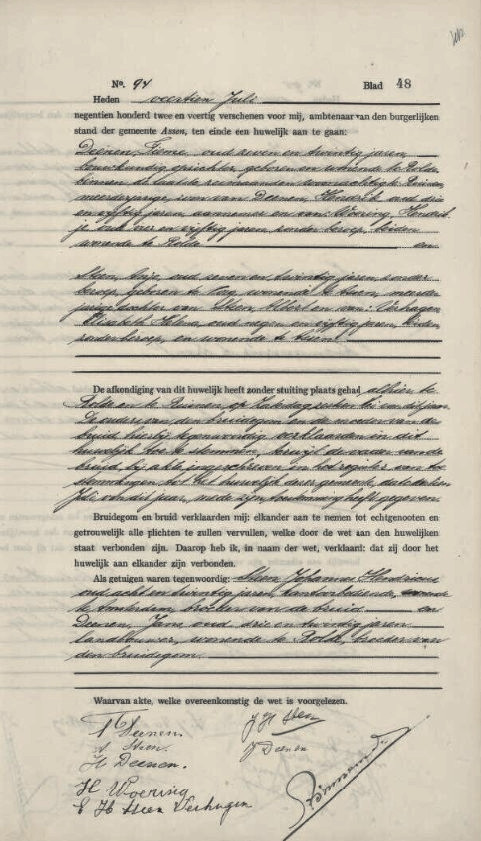 No. 94 Blad 48
Heden veertien Juli
negentien honderd twee en veertig verschenen voor mij, ambtenaar van den burgerlijken
stand der gemeente Assen, ten einde een huwelijk aan te gaan:
Deenen, oud zeven en twintig jaren,
bouwkundig opzichter, geboren en wonende te Rolde,
binnen de laatste zes maanden
meerderjarige zoon van Deenen, Hendrik oud drie
en vijftig jaren, aannemer en van: Woering, Hendrik-
je oud vier en vijftig jaren, zonder beroep, beiden
wonende te Rolde en
Steen, oud zeven en twintig jaren, zonder
beroep, geboren te wonende te Assen, meerder-
jarige dochter van Steen Albert en van: Verhagen
Elisabeth oud negen en vijftig jaren,
zonder beroep, en wonende te Assen
De afkondiging van dit huwelijk heeft zonder stuiting plaats gehad alhier, te
Rolde en te Ruinen op Zaterdag van dit jaar.
De ouders van den bruidegom en de moeder van de
bruid hierbij tegenwoordig verklaarden in dit
huwelijk toe te stemmen, terwijl de vader van de
bruid bij akte ingeschreven in het register van toe-
stemmingen tot het huwelijk dezer gemeente
Juli van dit jaar, mede zijn toestemming heeft gegeven.
Bruidegom en bruid verklaarden mij: elkander aan te nemen tot echtgenooten en
getrouwelijk alle plichten te zullen vervullen, welke door de wet aan den huwelijken
staat verbonden zijn. Daarop heb ik, in naam der wet, verklaard: dat zij door het
huwelijk aan elkander zijn verbonden.
Als getuigen waren tegenwoordig: Steen Johannes Hendricus
oud acht en twintig jaren, kantoorbediende, wonende
te Amsterdam, broeder van de bruid en
Deenen, Jans oud drie en twintig jaren
landbouwer, wonende te Rolde, broeder van
den bruidegom
Waarvan akte, welke overeenkomstig de wet is voorgelezen.
Deenen. J H Steen
A Steen. J Deenen
H Deenen.
H Woering
E H Steen Verhagen